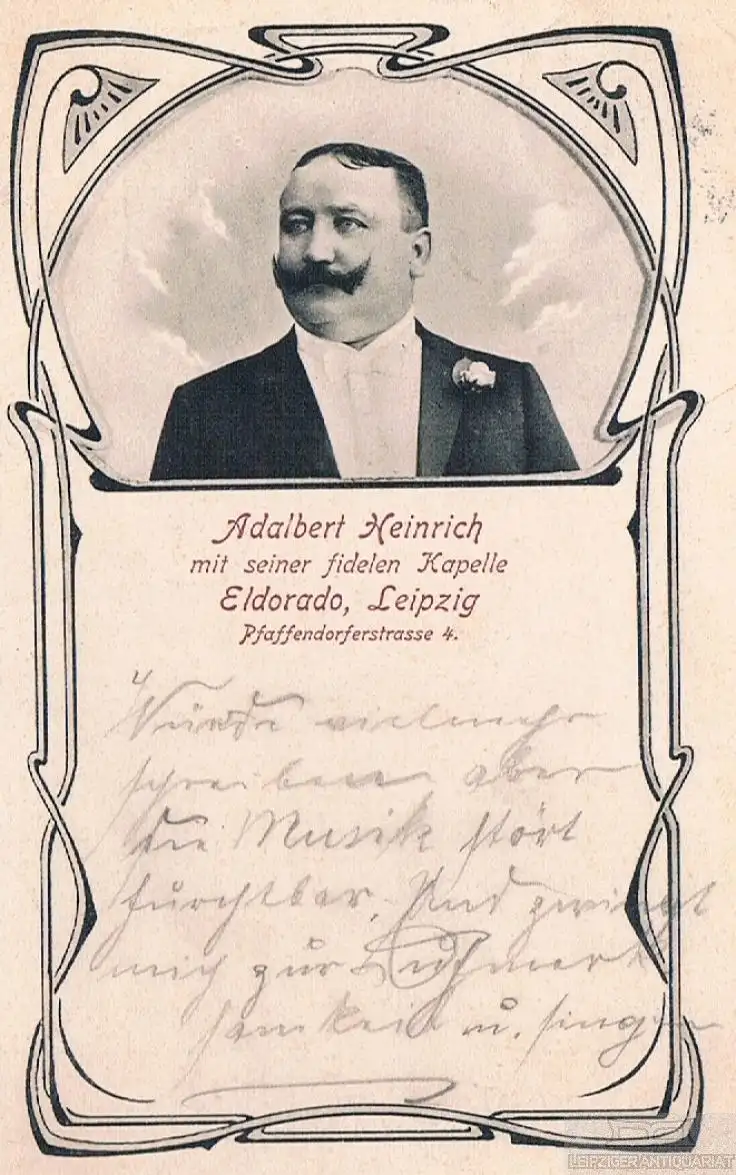 Adalbert Heinrich
mit seiner fidelen Kapelle
Eldorado, Leipzig
Pfaffendorferstrasse 4.
Würde vielmehr
schreiben aber
die Musik stört
furchtbar, und zwingt
mich zur Aufmerk
samkeit u. singen
LEIPZIGER ANTIQUARIAT